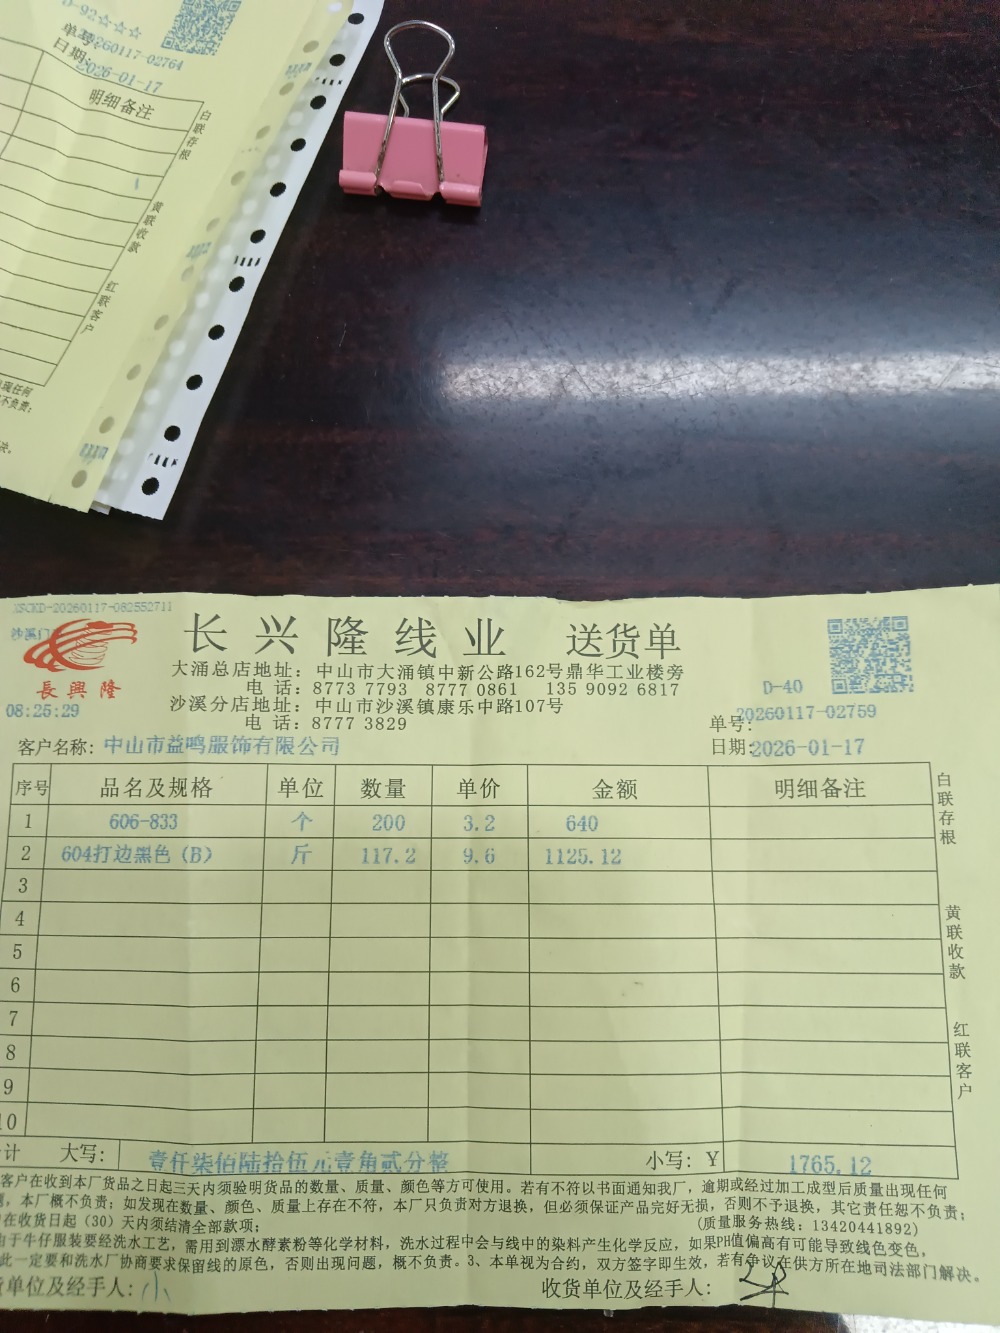 D-92☆☆☆
单号:
20260117-02764
日期:
2026-01-17
明细备注
白联存根
黄联收款
红联客户
现任何
不负责;
决。
XSCKD-20260117-082552711
沙溪门
長興隆
08:25:29
长兴隆线业 送货单
大涌总店地址：中山市大涌镇中新公路162号鼎华工业楼旁
电 话：8773 7793 8777 0861 135 9092 6817
沙溪分店地址：中山市沙溪镇康乐中路107号
电 话：8777 3829
D-40
单号:20260117-02759
客户名称: 中山市益鸣服饰有限公司
日期:2026-01-17
序号 品名及规格 单位 数量 单价 金额 明细备注
1 606-833 个 200 3.2 640
2 604打边黑色（B） 斤 117.2 9.6 1125.12
3
4
5
6
7
8
9
10
白联存根
黄联收款
红联客户
计 大写: 壹仟柒佰陆拾伍元壹角贰分整 小写: Y 1765.12
客户在收到本厂货品之日起三天内须验明货品的数量、质量、颜色等方可使用。若有不符以书面通知我厂，逾期或经过加工成型后质量出现任何
，本厂概不负责; 如发现在数量、颜色、质量上存在不符，本厂只负责对方退换，但必须保证产品完好无损，否则不予退换，其它责任恕不负责;
在收货日起（30）天内须结清全部款项; (质量服务热线：13420441892)
由于牛仔服装要经洗水工艺，需用到漂水酵素粉等化学材料，洗水过程中会与线中的染料产生化学反应，如果PH值偏高有可能导致线色变色，
此一定要和洗水厂协商要求保留线的原色，否则出现问题，概不负责。3、本单视为合约，双方签字即生效，若有争议在供方所在地司法部门解决。
货单位及经手人: 小
收货单位及经手人: